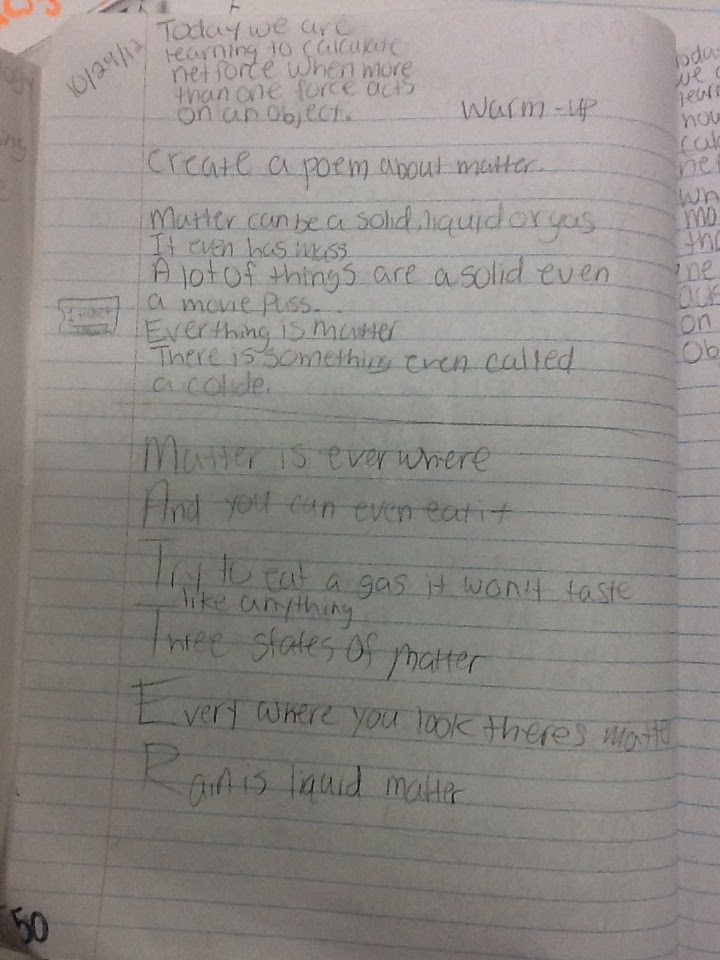 10/24/12
Today we are
learning to calculate
net force when more
than one force acts
on an object.
Warm-up
Create a poem about matter.
Matter can be a solid, liquid or gas
It even has mass
A lot of things are a solid even
a movie puss.
Everthing is matter
There is something even called
a colide.
Matter is ever where
And you can even eat it
Try to eat a gas it won't taste
like anything
Three states of matter
Every where you look theres matte
Rain is liquid matter
50